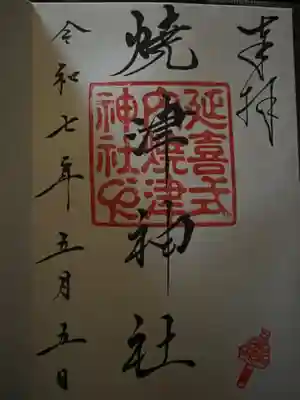 奉拝
延喜式
内焼津
神社印
焼津神社
令和七年五月五日